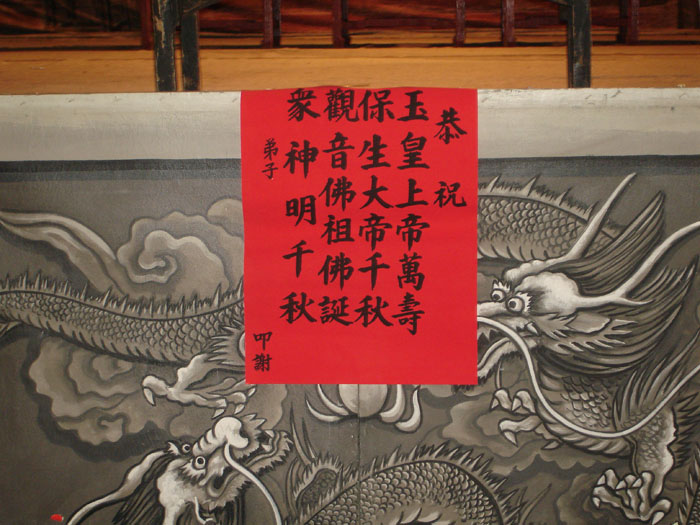 恭祝
玉皇上帝萬壽
保生大帝千秋
觀音佛祖佛誕
衆神明千秋
弟子
叩謝